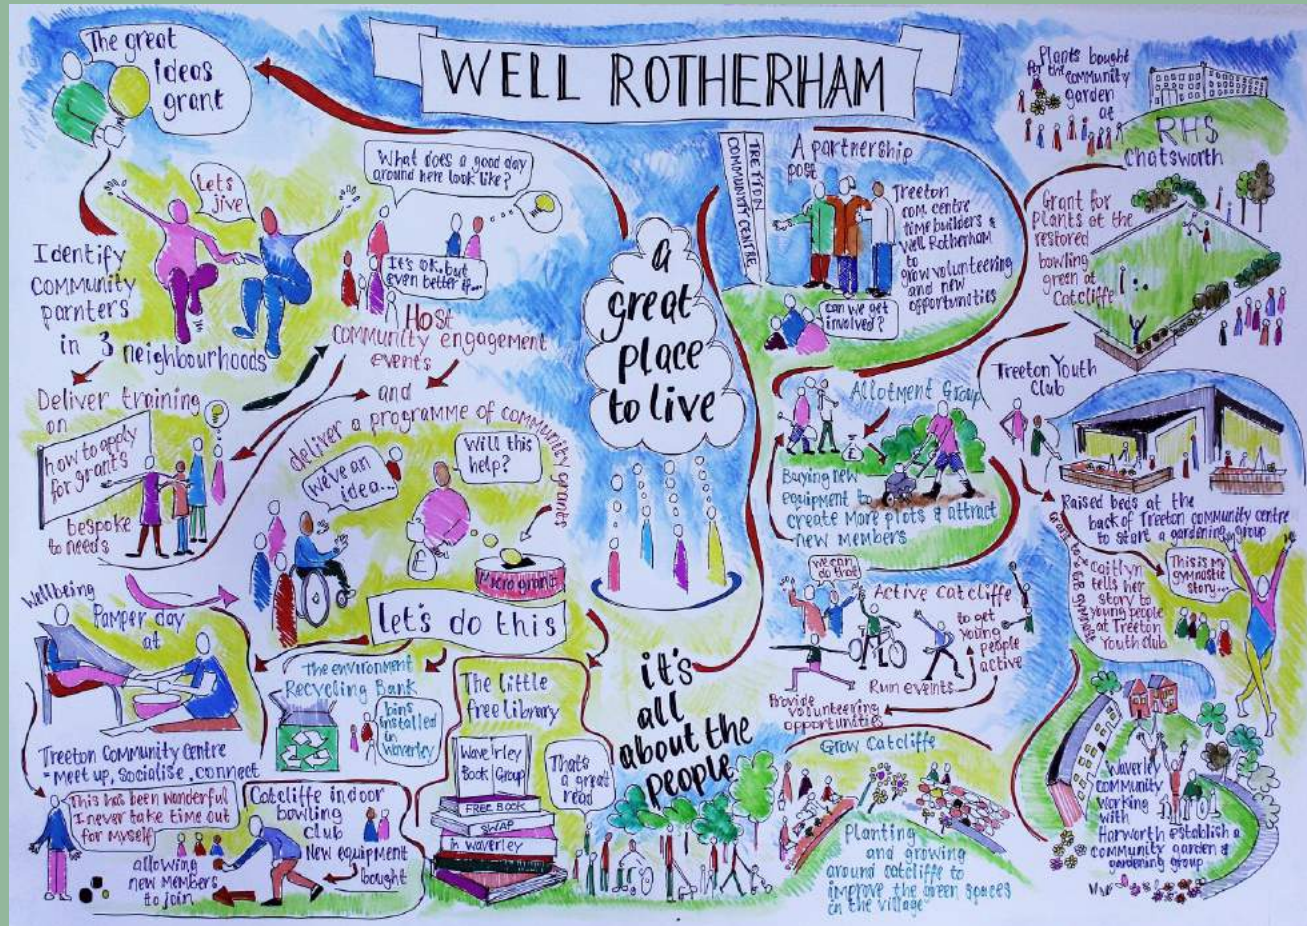 WELL ROTHERHAM
The great
ideas
grant
Identify
community
parnters
in 3 neighbourhoods
Lets
jive
What does a good day
around here look like?
It's ok, but
even better if...
Host
community engagement
events
and
deliver a programme of community grants
Deliver training
on
how to apply
for grants
bespoke
to needs
we've an
idea...
Will this
help?
£
Micro grant
Let's do this
Wellbeing
Pamper day
at
Treeton Community Centre
= meet up, socialise, connect
This has been wonderful
I never take time out
for myself
The environment
Recycling Bank
bins
installed
in
waverley
Catcliffe indoor
bowling
club
New equipment
bought
allowing
new members
to join
The Little
free library
Waverley
Book Group
FREE BOOK
SWAP
in waverley
Thats
a great
read
a
great
place
to live
it's
all
about the
people
TREETON
COMMUNITY CENTRE
A partnership
post
Treeton
com centre
time builders &
Well Rotherham
to
grow volunteering
and new
opportunities
can we get
involved?
Allotment Group
£
Buying new
equipment to
create more plots & attract
new members
we can
do that!
Active Catcliffe
to get
young
people
active
Run events
Provide
volunteering
opportunities
Grow Catcliffe
Planting
and growing
around catcliffe to
improve the green spaces
in the village
Plants bought
for the community
garden
at
RHS
Chatsworth
Grant for
plants at the
restored
bowling
green at
Catcliffe
Treeton Youth
Club
Raised beds at the
back of Treeton community centre
to start a gardening group
Grant to GB gymnast
Caitlyn
tells her
story to
young people
at Treeton
Youth club
This is my
gymnastic
story...
Waverley
community
working
with
Harworth establish a
community garden &
gardening group